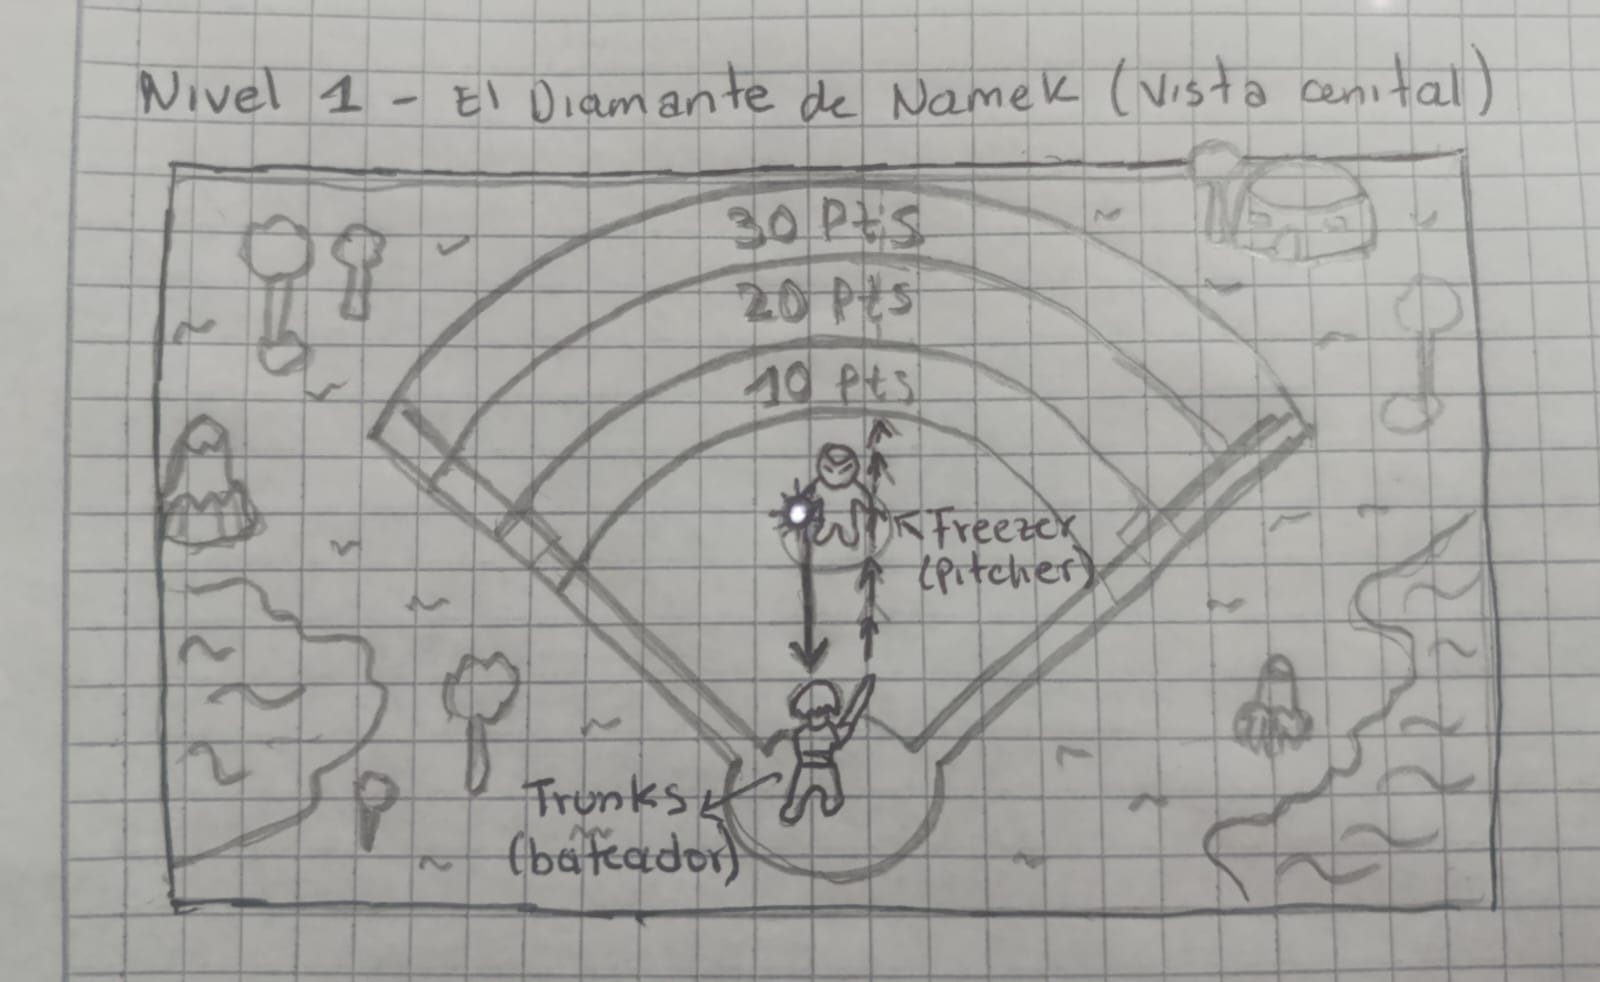 Nivel 1 - El Diamante de Namek (vista cenital)
30 Pts
20 Pts
10 Pts
Freezer
(pitcher)
Trunks
(bateador)